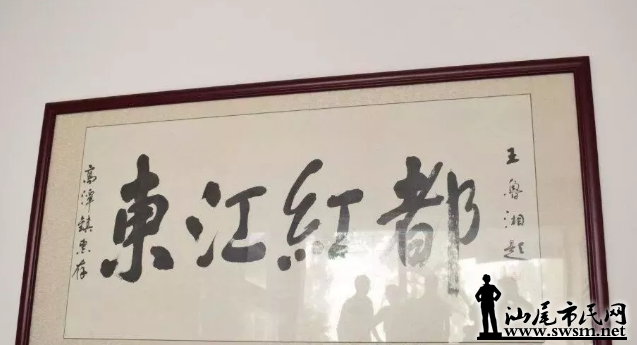 高潭鎮惠存
東江紅都
王魯湘題
汕尾市民网
www.swsm.net